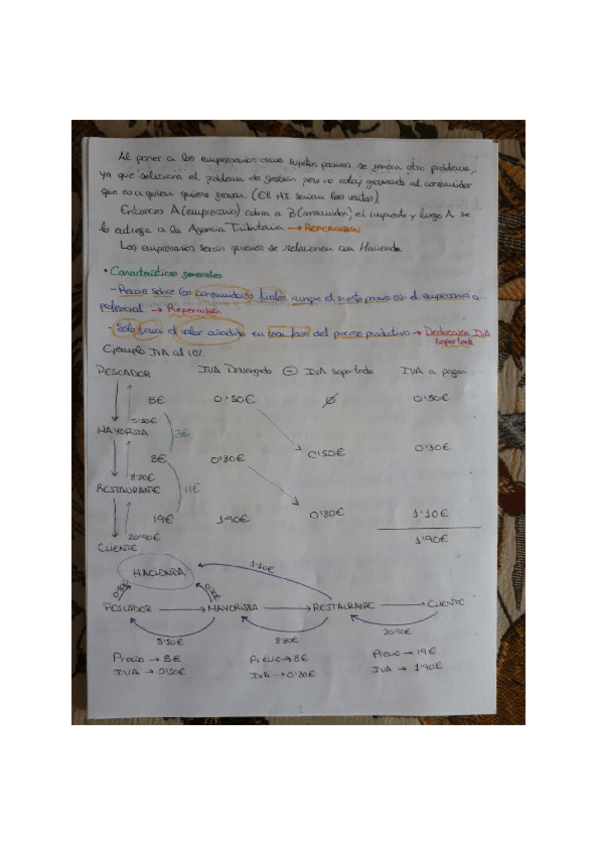 Al poner a los empresarios como sujetos pasivos se genera otro problema,
ya que soluciona el problema de gestión pero no estoy gravando al consumidor
que es a quien quiero gravar. (El HI serían las ventas)
Entonces A (empresario) cobra a B (consumidor) el impuesto y luego A se
lo entrega a la Agencia Tributaria → Repercusión
Los empresarios serán quienes se relacionen con Hacienda.
• Características generales
- Recae sobre los consumidores finales, aunque el sujeto pasivo es el empresario o
profesional → Repercusión
- Solo grava el valor añadido en cada fase del proceso productivo → Deducción IVA
soportado
Ejemplo IVA al 10%.
PESCADOR IVA Devengado (-) IVA soportado IVA a pagar
5€ 0'50€ Ø 0'50€
5'50€
MAYORISTA 3€ 0'50€ 0'30€
8€ 0'80€
8'80€
RESTAURANTE 11€
19€ 1'90€ 0'80€ 1'10€
20'90€ 1'90€
CLIENTE
HACIENDA 1'10€
0'50€ 0'30€
PESCADOR → MAYORISTA → RESTAURANTE → CLIENTE
5'50€ 8'80€ 20'90€
Precio → 5€ Precio → 8€ Precio → 19€
IVA → 0'50€ IVA → 0'80€ IVA → 1'90€